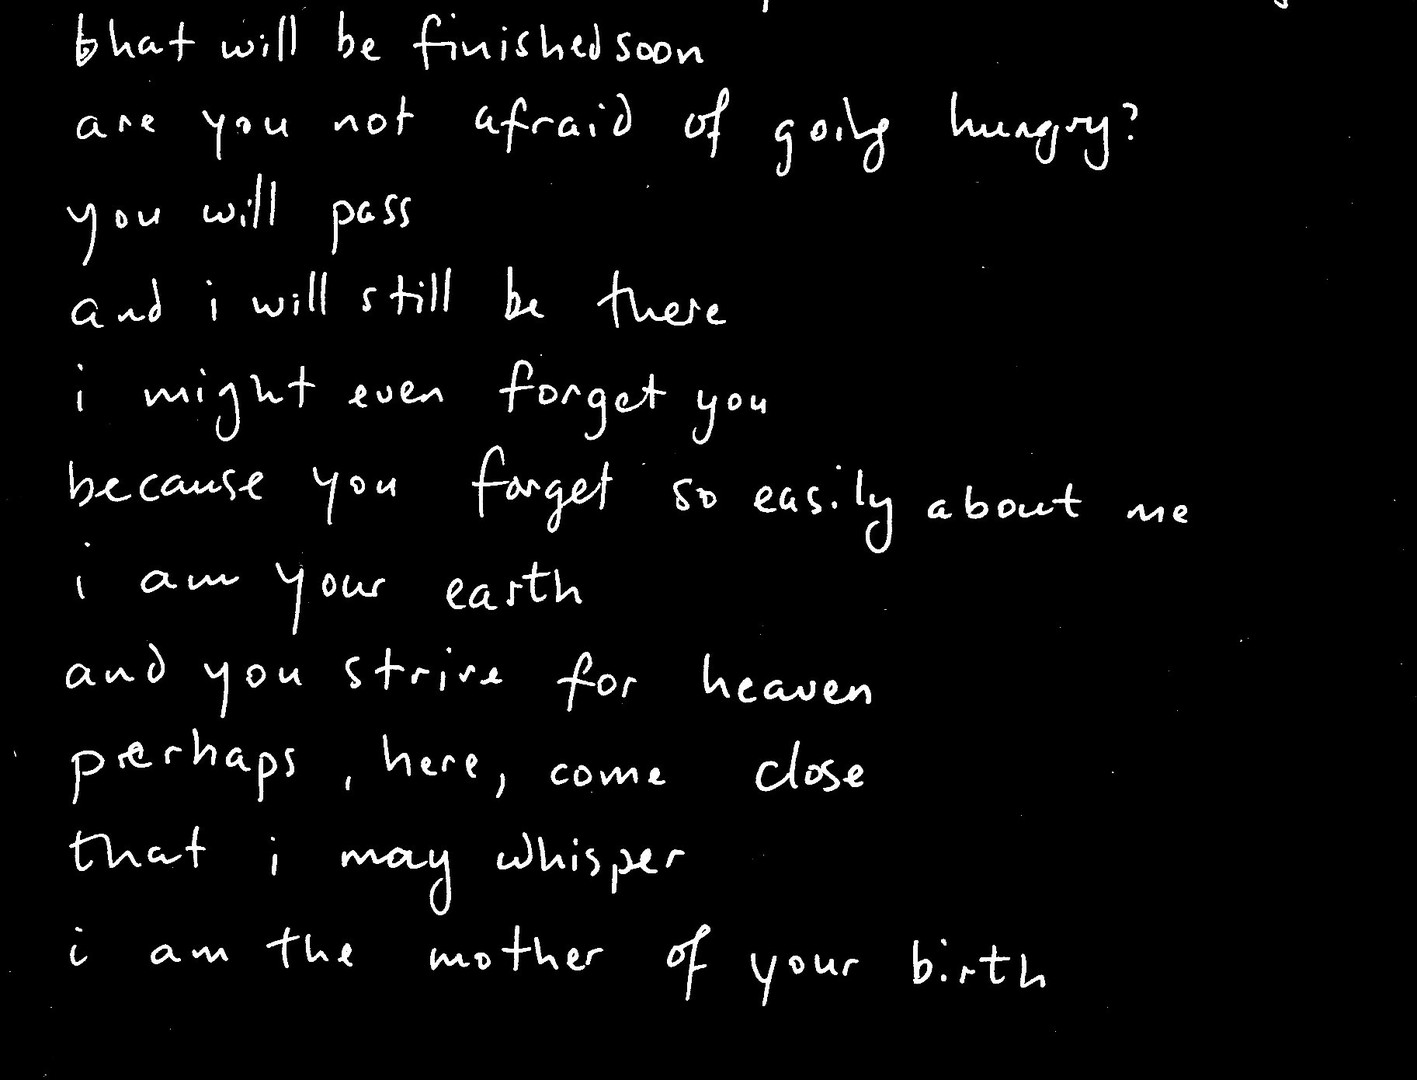 that will be finished soon
are you not afraid of going hungry?
you will pass
and i will still be there
i might even forget you
because you forget so easily about me
i am your earth
and you strive for heaven
perhaps, here, come close
that i may whisper
i am the mother of your birth